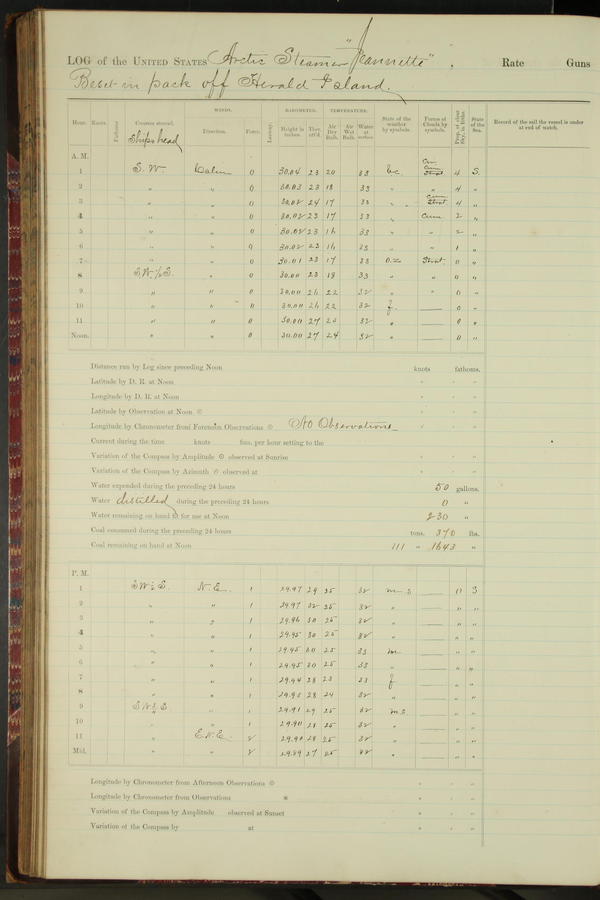 LOG of the UNITED STATES Arctic Steamer "Jeannette", Rate Guns
Beset in pack off Herald Island.
WINDS. BAROMETER. TEMPERATURE.
Hour. Knots. Fathoms. Courses steered. Direction. Force. Leeway. Height in inches. Ther. att'd. Air Dry Bulb. Air Wet Bulb. Water at surface. State of the weather by symbols. Forms of Clouds by symbols. Prop. of clear Sky, in 10ths. State of the Sea. Record of the sail the vessel is under at end of watch.
Ship's head
A. M.
1 S. W. Calm 0 30.04 23 20 33 b.c. 4 S.
2 " " 0 30.03 23 18 33 " " 4 "
3 " " 0 30.02 24 17 33 " " 4 "
4 " " 0 30.02 23 17 33 " Cum 2 "
5 " " 0 30.02 23 16 33 " " 2 "
6 " " 0 30.02 23 16 33 " " 1 "
7 " " 0 30.01 23 17 33 Strat. 0 "
8 " 0 30.00 23 18 33 " " 0 "
9 " " 0 30.00 26 22 32 " " 0 "
10 " " 0 30.00 26 22 32 f. 0 "
11 " " 0 30.00 27 23 32 " 0 "
Noon. " " 0 30.00 27 24 32 " 0 "
Distance run by Log since preceding Noon knots fathoms.
Latitude by D. R. at Noon ° ′ ″
Longitude by D. R. at Noon ° ′ ″
Latitude by Observation at Noon ☉ ° ′ ″
Longitude by Chronometer from Forenoon Observations ☉ No Observations ° ′ ″
Current during the time knots fms. per hour setting to the
Variation of the Compass by Amplitude ☉ observed at Sunrise ° ′ ″
Variation of the Compass by Azimuth ☉ observed at ° ′ ″
Water expended during the preceding 24 hours 50 gallons.
Water distilled during the preceding 24 hours 0 "
Water remaining on hand fit for use at Noon 230 "
Coal consumed during the preceding 24 hours tons. 370 lbs.
Coal remaining on hand at Noon 111 " 1643 "
P. M.
1 SW½S. N. E. 1 29.97 29 25 32 m s 0 S
2 " " 1 29.97 32 25 32 " " "
3 " " 1 29.96 30 25 32 " " "
4 " " 1 29.95 30 25 32 " " "
5 " " 1 29.95 30 25 33 m " "
6 " " 1 29.95 30 25 33 " " "
7 " " 1 29.94 28 23 33 f " "
8 " " 1 29.93 28 24 32 " " "
9 " 1 29.91 29 25 32 m.s. " "
10 " " 1 29.90 28 25 32 " " "
11 " E.N.E. 2 29.90 28 25 32 " " "
Mid. " " 2 29.89 27 25 32 " " "
Longitude by Chronometer from Afternoon Observations ☉ ° ′ ″
Longitude by Chronometer from Observations * ° ′ ″
Variation of the Compass by Amplitude observed at Sunset ° ′ ″
Variation of the Compass by at ° ′ ″